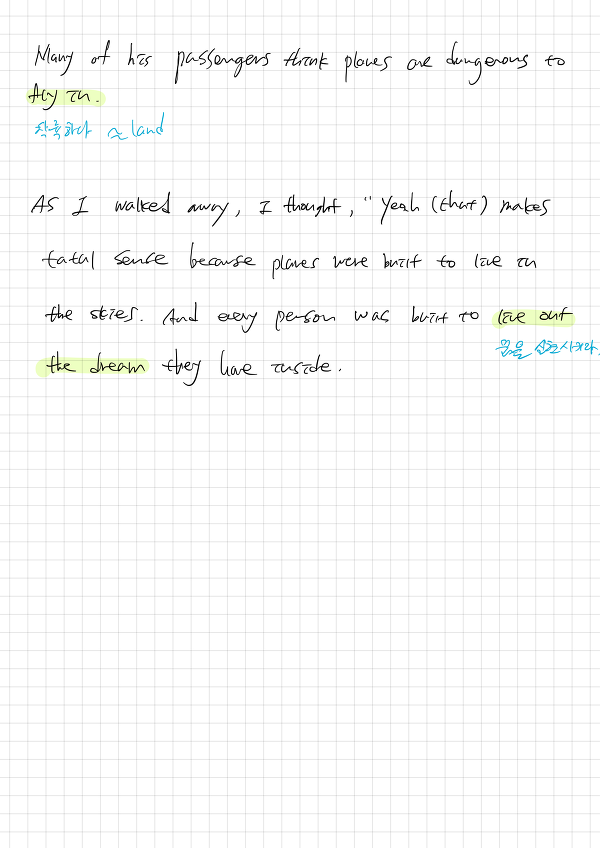 Many of his passengers think planes are dangerous to
fly in.
착륙하다 ≈ land
As I walked away, I thought, "Yeah (that) makes
total sense because planes were built to live in
the skies. And every person was built to live out
꿈을
the dream they have inside.